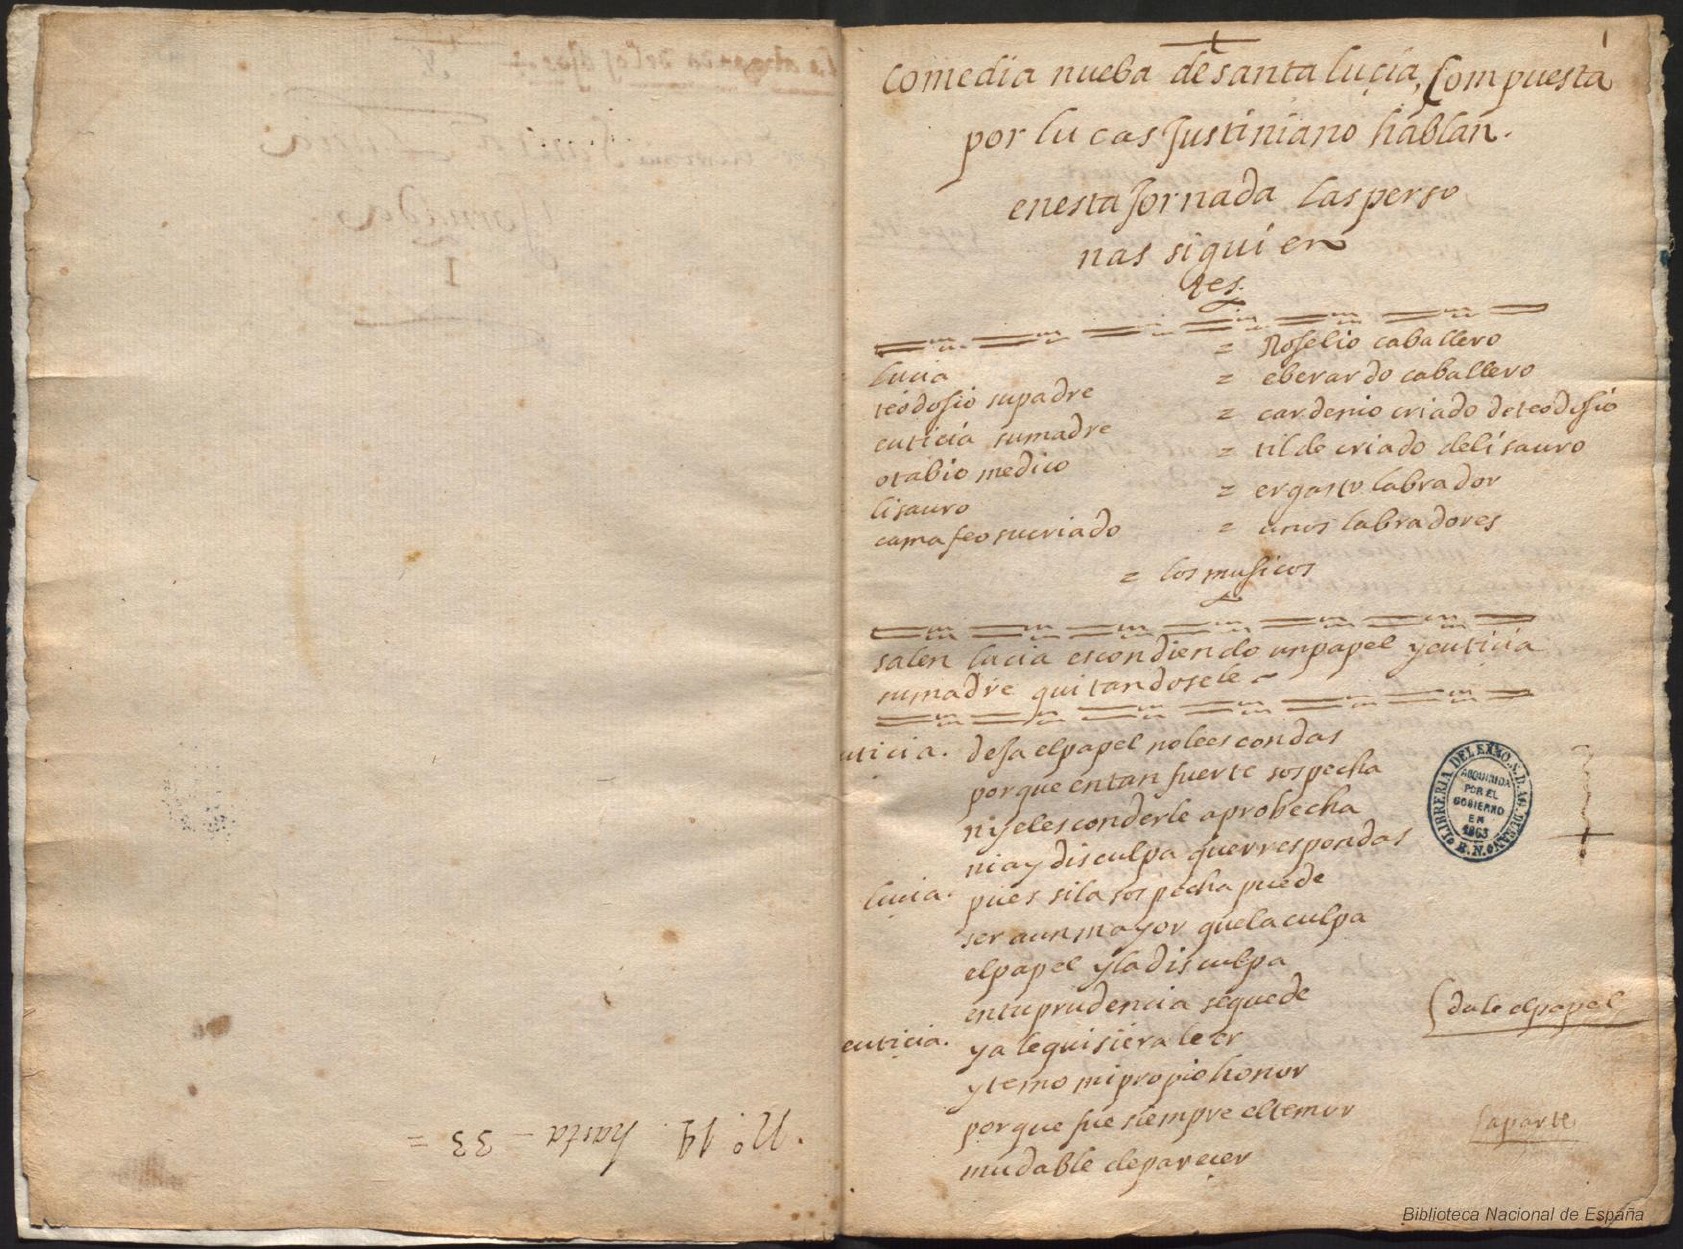 nº. 14. hasta - 33 =
1
comedia nueba de santa lucia, Compuesta
por lucas Justiniano hablan.
en esta Jornada las perso
nas siguien
tes.
lucia
teodosio su padre
euticia su madre
otabio medico
lisauro
camafeo su criado
= Roselio caballero
= eberardo caballero
= cardenio criado de teodosio
= tilde criado de lisauro
= ergasto labrador
= unos labradores
= los musicos
salen lucia escondiendo un papel y euticia
su madre quitandosele -
uticia. deja el papel no le escondas
porque en tan fuerte sospecha
ni el esconderle aprobecha
ni ay disculpa que rrespondas
lucia. pues si la sospecha puede
ser aun mayor que la culpa
el papel y la disculpa
en tu prudencia se quede
(dale el papel
euticia. ya le quisiera leer
y temo mi propio honor
porque fue siempre el temor
mudable de parecer
(aparte
LIBRERIA DEL EXMO. S. D. AG. DURAN
ADQUIRIDA
POR EL
GOBIERNO
EN
1863
B.N.
Biblioteca Nacional de España